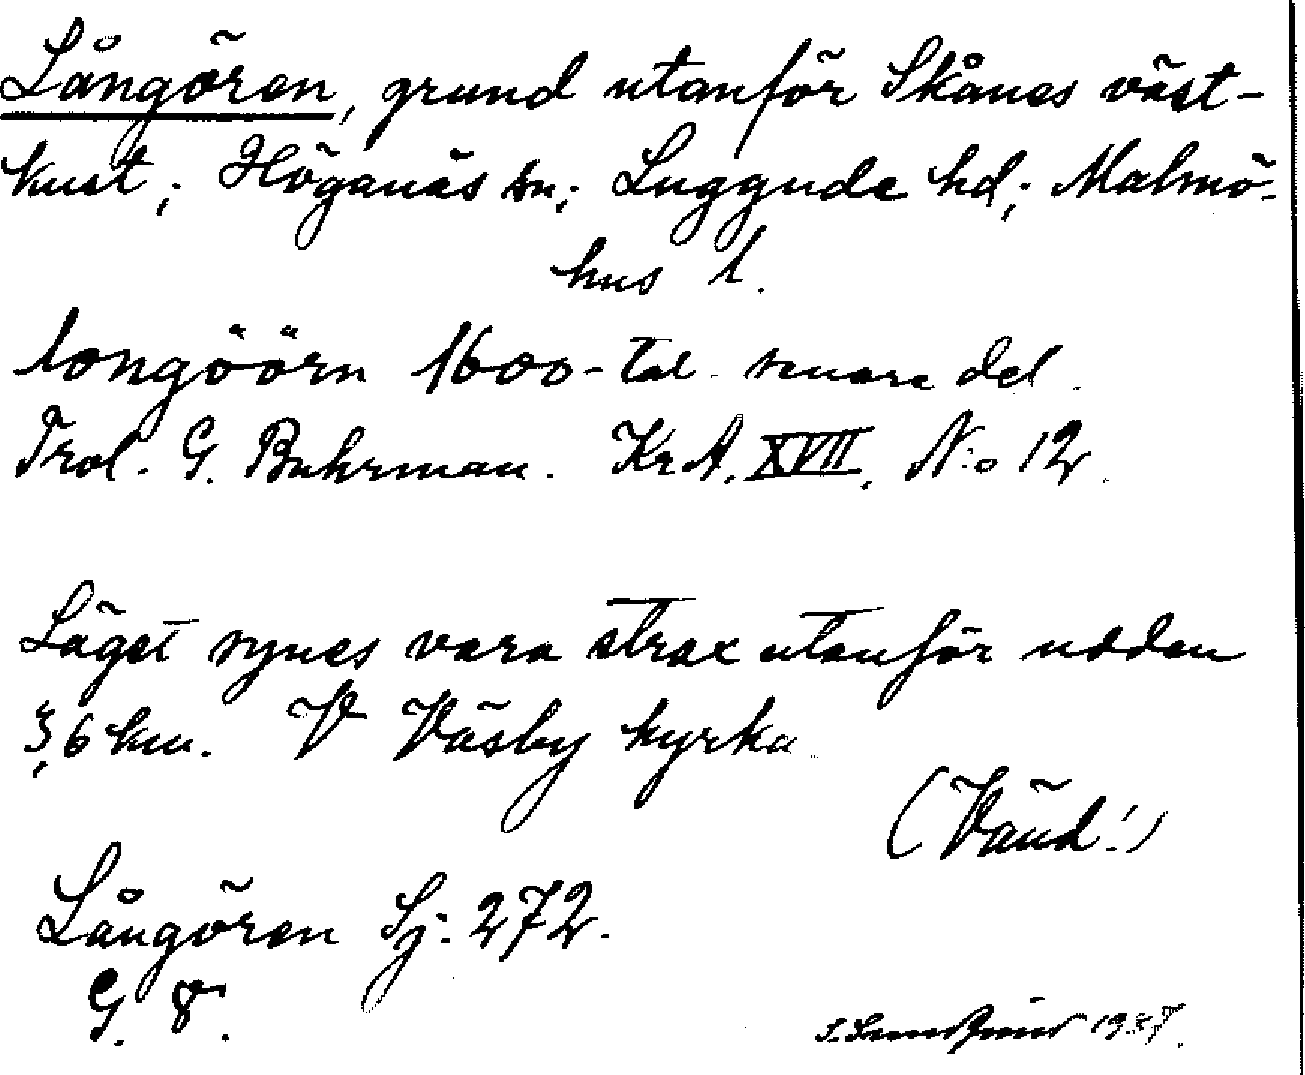 Långören, grund utanför Skånes väst-
kust; Höganäs sn; Luggude hd; Malmö-
hus l.
longöörn 1600-tal senare del.
Trol. G. Buhrman. Kr A. XVII, N:o 12.
Läget synes vara strax utanför udden
3,6 km. V Väsby kyrka.
(Vänd!)
Långören Sj: 272.
G. 8.